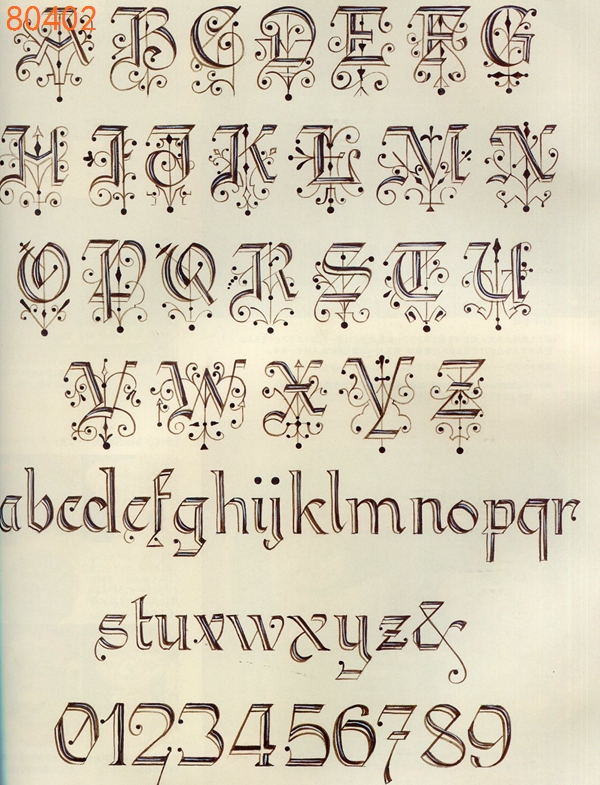 80402
A B C D E F G
H I J K L M N
O P Q R S T U
V W X Y Z
abcdefghijklmnopqr
stuvwxyz&
0123456789